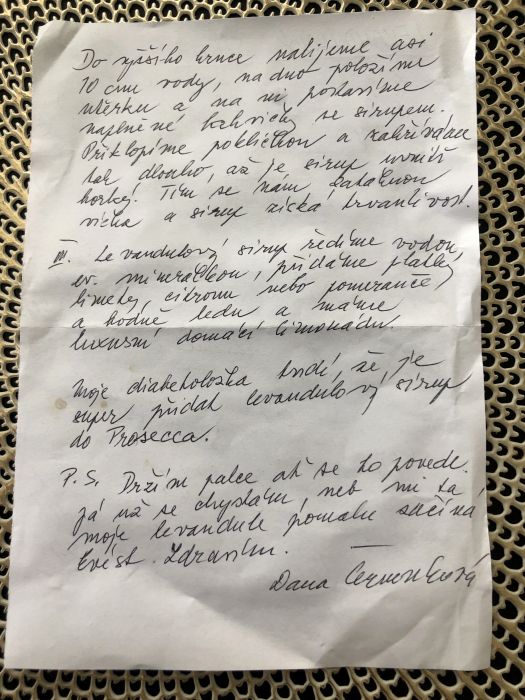 Do vyššího hrnce nalijeme asi
10 cm vody, na dno položíme
utěrku a na ni postavíme
naplněné lahvičky se sirupem.
Přiklopíme pokličkou a zahříváme
tak dlouho, až je sirup uvnitř
horký. Tím se nám zatáhnou
víčka a sirup získá trvanlivost.
III. Levandulový sirup ředíme vodou,
ev. minerálkou, přidáme plátky
limetky, citronu nebo pomeranče,
a hodně ledu a máme
luxusní domácí limonádu.
Moje diabetoložka tvrdí, že je
super přidat levandulový sirup
do Prosecca.
P.S. Držím palce ať se to povede.
Já už se chystám, neb mi ta
moje levandule pomalu začíná
kvést. Zdravím.
Dana